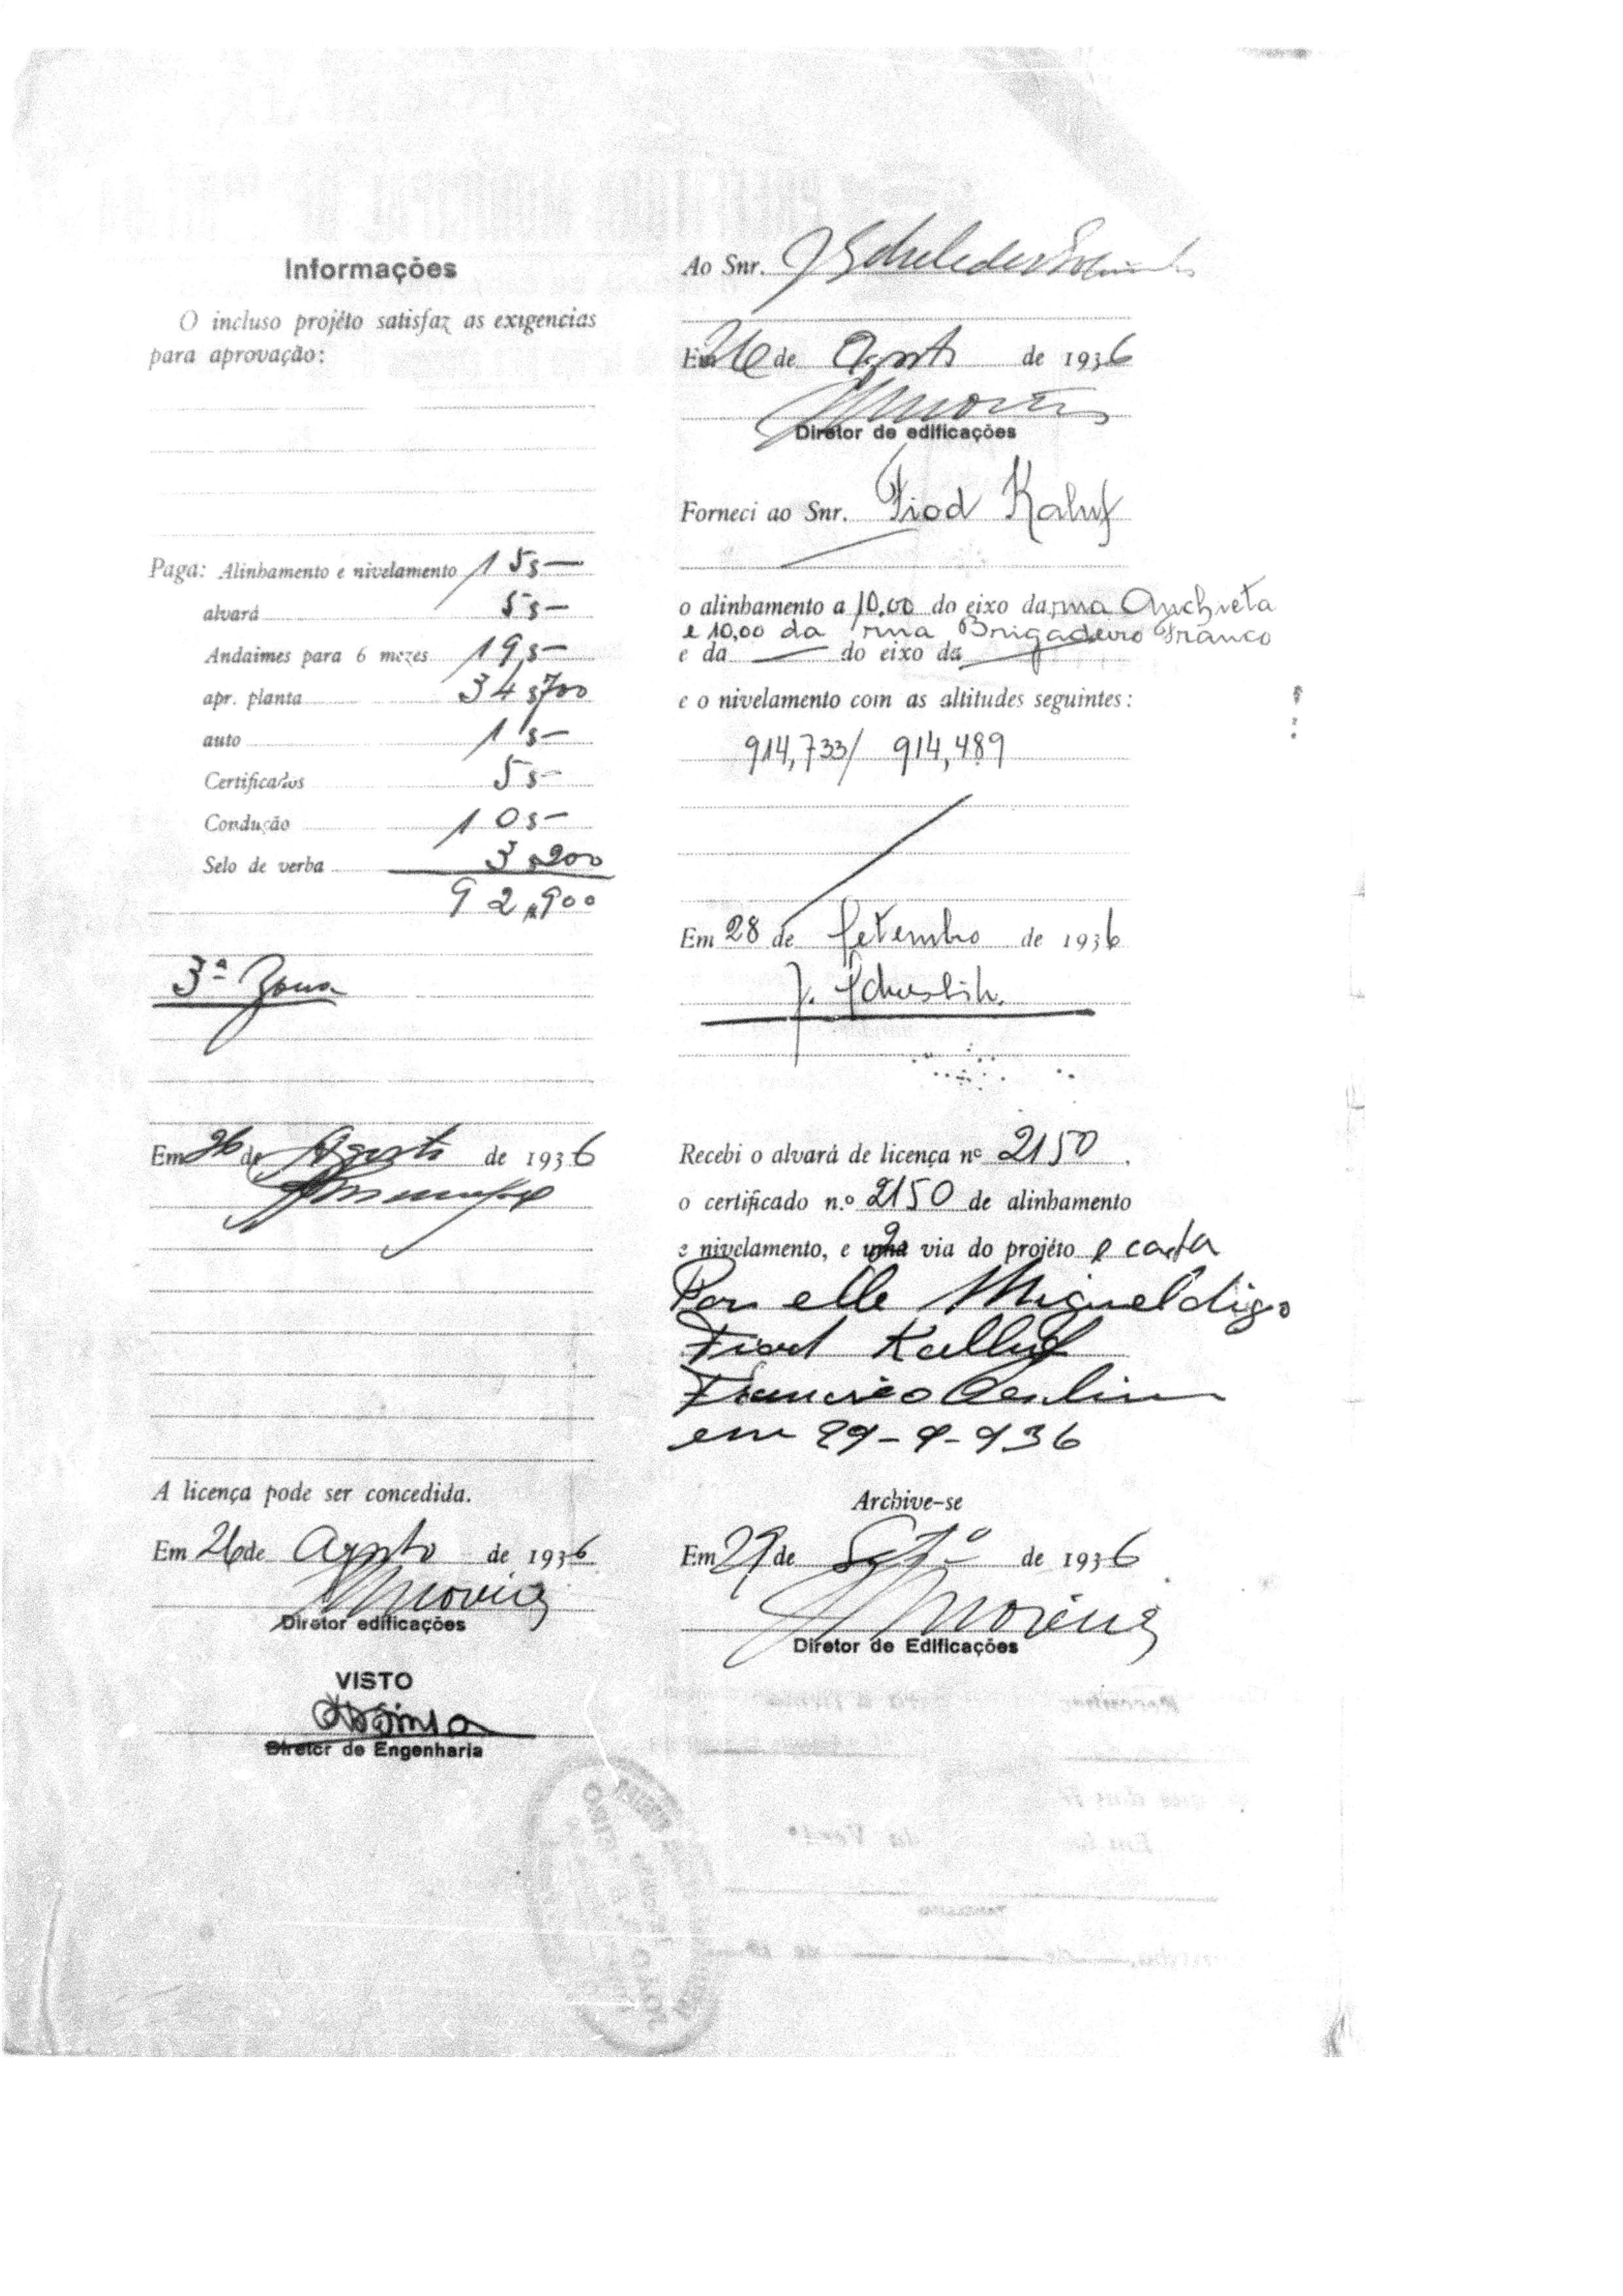 Informações
O incluso projéto satisfaz as exigencias
para aprovação:
Paga: Alinhamento e nivelamento 15$—
alvará 5$—
Andaimes para 6 mezes 19$—
apr. planta 34$700
auto 1$—
Certificados 5$—
Condução 10$—
Selo de verba 3$200
92$900
3ª Zona
Em 26 de Agosto de 1936
A licença pode ser concedida.
Em 26 de Agosto de 1936
Diretor edificações
VISTO
Diretor de Engenharia
Ao Snr.
Em 26 de Agosto de 1936
Diretor de edificações
Forneci ao Snr. Fiod Kaluf
o alinhamento a 10,00 do eixo da rua Anchieta
e 10,00 da rua Brigadeiro Franco
e da — do eixo da
e o nivelamento com as altitudes seguintes:
914,733/ 914,489
Em 28 de Setembro de 1936
Recebi o alvará de licença nº 2150.
o certificado n.º 2150 de alinhamento
e nivelamento, e 2 via do projéto e carta
Por elle Miguel digo
Fiod Kalluf
Francisco
em 29-9-936
Archive-se
Em 29 de Setº de 1936
Diretor de Edificações